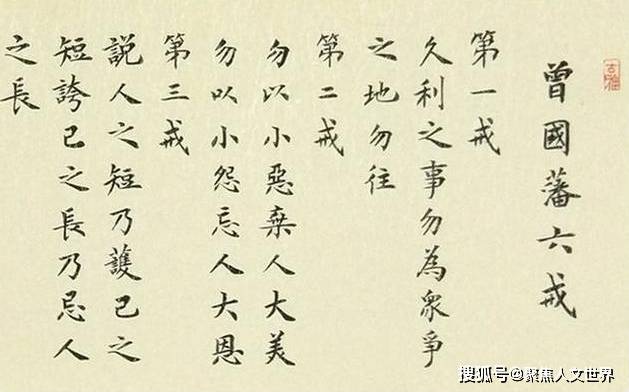 曾國藩六戒
第一戒
久利之事勿為衆爭
之地勿往
第二戒
勿以小惡棄人大美
勿以小怨忘人大恩
第三戒
説人之短乃護己之
短誇己之長乃忌人
之長
搜狐号@聚焦人文世界